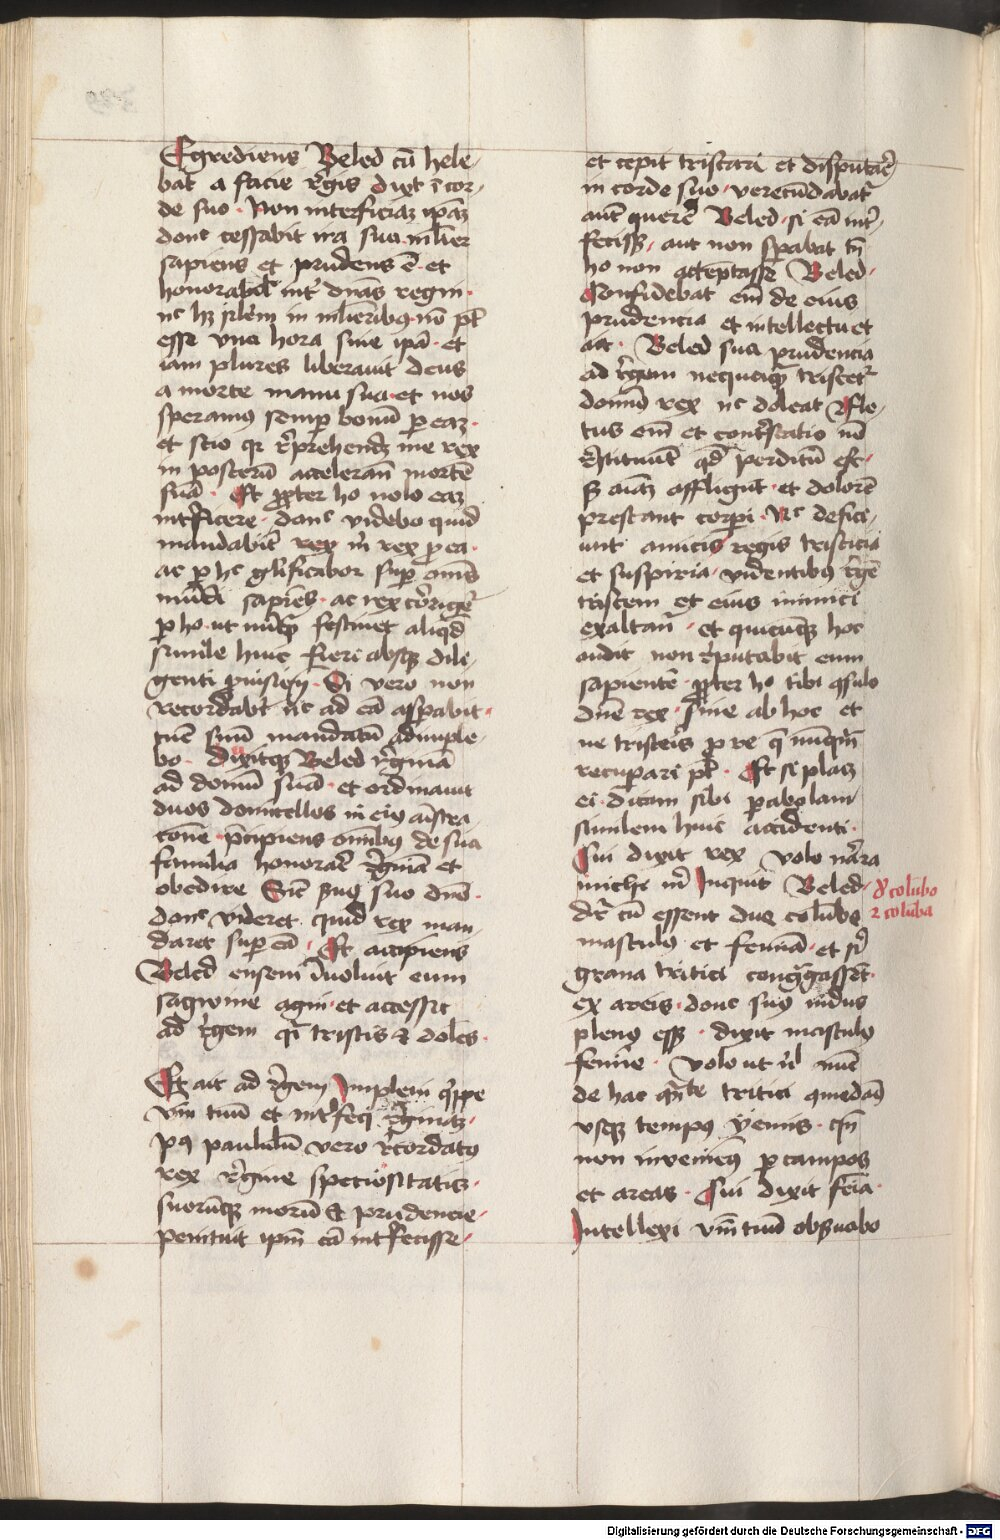 Egrediens Beled cū hele
bat a facie r̄gis dixt ī cor
de suo · Non interficiaz ip̄az
donc cessabit ira sua mlīer
sapiens et prudens ē · et
honorabil' int' dn̄as regni ·
nc hz in mlīeribus nō pt̄
esse una hora sine ipā · et
iam plures liberavit deus
a morte manu sua · et nos
speramus semp bonū p eaz ·
et scio qr r̄prehendz me rex
in posterū accelerari mortē
suā · Et ꝓpter ho nolo eaz
int'ficere · donc videbo quid
mandabit rex m̄ rex p ea ·
ac p hc gl'ificabor sup om̄s
mūdi sapiēs · ac rex cōrigēt
p ho · ut nūqꝫ festinet aliqd
simile huic fieri absqꝫ dili
genti · Si vero non
recordabit nc ad eā aspabit ·
tūc suū mandatū adimple
bo · dixitqꝫ Beled r̄ginā
ad domū suā · et ordinavit
duos domicellos in eius
p̄cipiens om̄ibus de sua
familia honorare r̄ginā et
obedire Sic suo dn̄o ·
donc videret quid rex man
daret sup eā · Et accipiens
Beled ensem īvoluit eum
sagwine agni · et accessit
ad r̄gem qi tristis & dolēs ·
Et ait ad r̄gem Impleui
vm̄ tuū et int'feci r̄ginaz ·
pus paululū vero r̄cordatus
rex r̄gine speciositatis ·
suorūqꝫ morū & prudencie ·
penituit ipm̄ eā int'fecisse ·
et cepit tristari et disputare
in corde suo · verecūdabat'
aūt querē Beled · si eā int'
fecisset · aut non spabat tn̄
ho non acceptasse Beled ·
Confidebat em̄ de eius
prudencia et intellectu et
ait · Beled sua prudencia
ad r̄gem nequaqꝫ tristet'
domīus rex nc doleat Fle
tus em̄ et cont'statio nō
r̄stituūt qd perditū est ·
affligūt · et dolorē
prestant corpi · Nc defici
unt amicis regis tristicia
et suspiria · videntibus r̄gē
tristem et eius inimici
exaltant' · et quicūqꝫ hoc
audit non r̄putabit eum
sapientē · ꝓpter ho tibi ꝯsulo
dn̄e rex · sine ab hoc et
ne tristeris p re q̄ nūqm̄
recuperari pt̄ · Et si placz
ei · dicam sibi parabolam
similem huic accidenti ·
Cui dixit rex volo nar̄a
miche m̄ Inquit Beled ·
dr̄ cū essent due colūbe
masculus et femīa · et sic
grana tritici congregassēt ·
ex areis · donc suus nidus
plenus esset · dixit masculus
femīe · volo ut nil nūc
de hac tritici
usqꝫ tempus yemis · qn̄
non invenietus p campos
et areas · Cui dixit femīa ·
Intellexi vm̄ tuū obs'vabo
colūbo
2 colūba
Digitalisierung gefördert durch die Deutsche Forschungsgemeinschaft - DFG